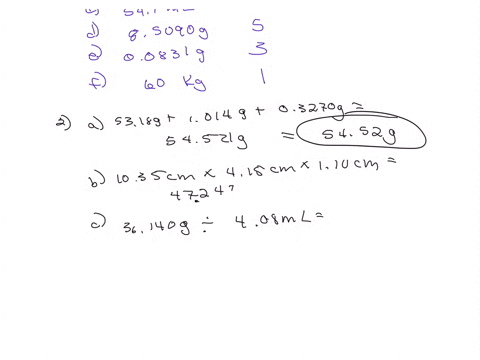 d) 8.5090g 5
e) 0.0831g 3
f) 60 Kg 1
2) a) 53.18g + 1.014g + 0.3270g =
54.521g = 54.52g
b) 10.35cm x 4.15cm x 1.10cm =
47.247
c) 36.140g ÷ 4.08mL=